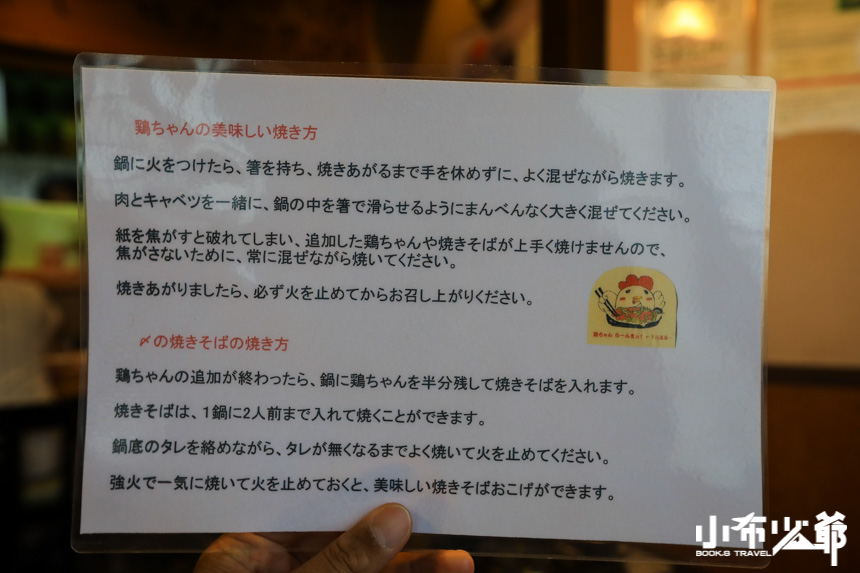 鶏ちゃんの美味しい焼き方
鍋に火をつけたら、箸を持ち、焼きあがるまで手を休めずに、よく混ぜながら焼きます。
肉とキャベツを一緒に、鍋の中を箸で滑らせるようにまんべんなく大きく混ぜてください。
紙を焦がすと破れてしまい、追加した鶏ちゃんや焼きそばが上手く焼けませんので、
焦がさないために、常に混ぜながら焼いてください。
焼きあがりましたら、必ず火を止めてからお召し上がりください。
〆の焼きそばの焼き方
鶏ちゃんの追加が終わったら、鍋に鶏ちゃんを半分残して焼きそばを入れます。
焼きそばは、1鍋に2人前まで入れて焼くことができます。
鍋底のタレを絡めながら、タレが無くなるまでよく焼いて火を止めてください。
強火で一気に焼いて火を止めておくと、美味しい焼きそばおこげができます。
小布少爺
BOOK.S TRAVEL